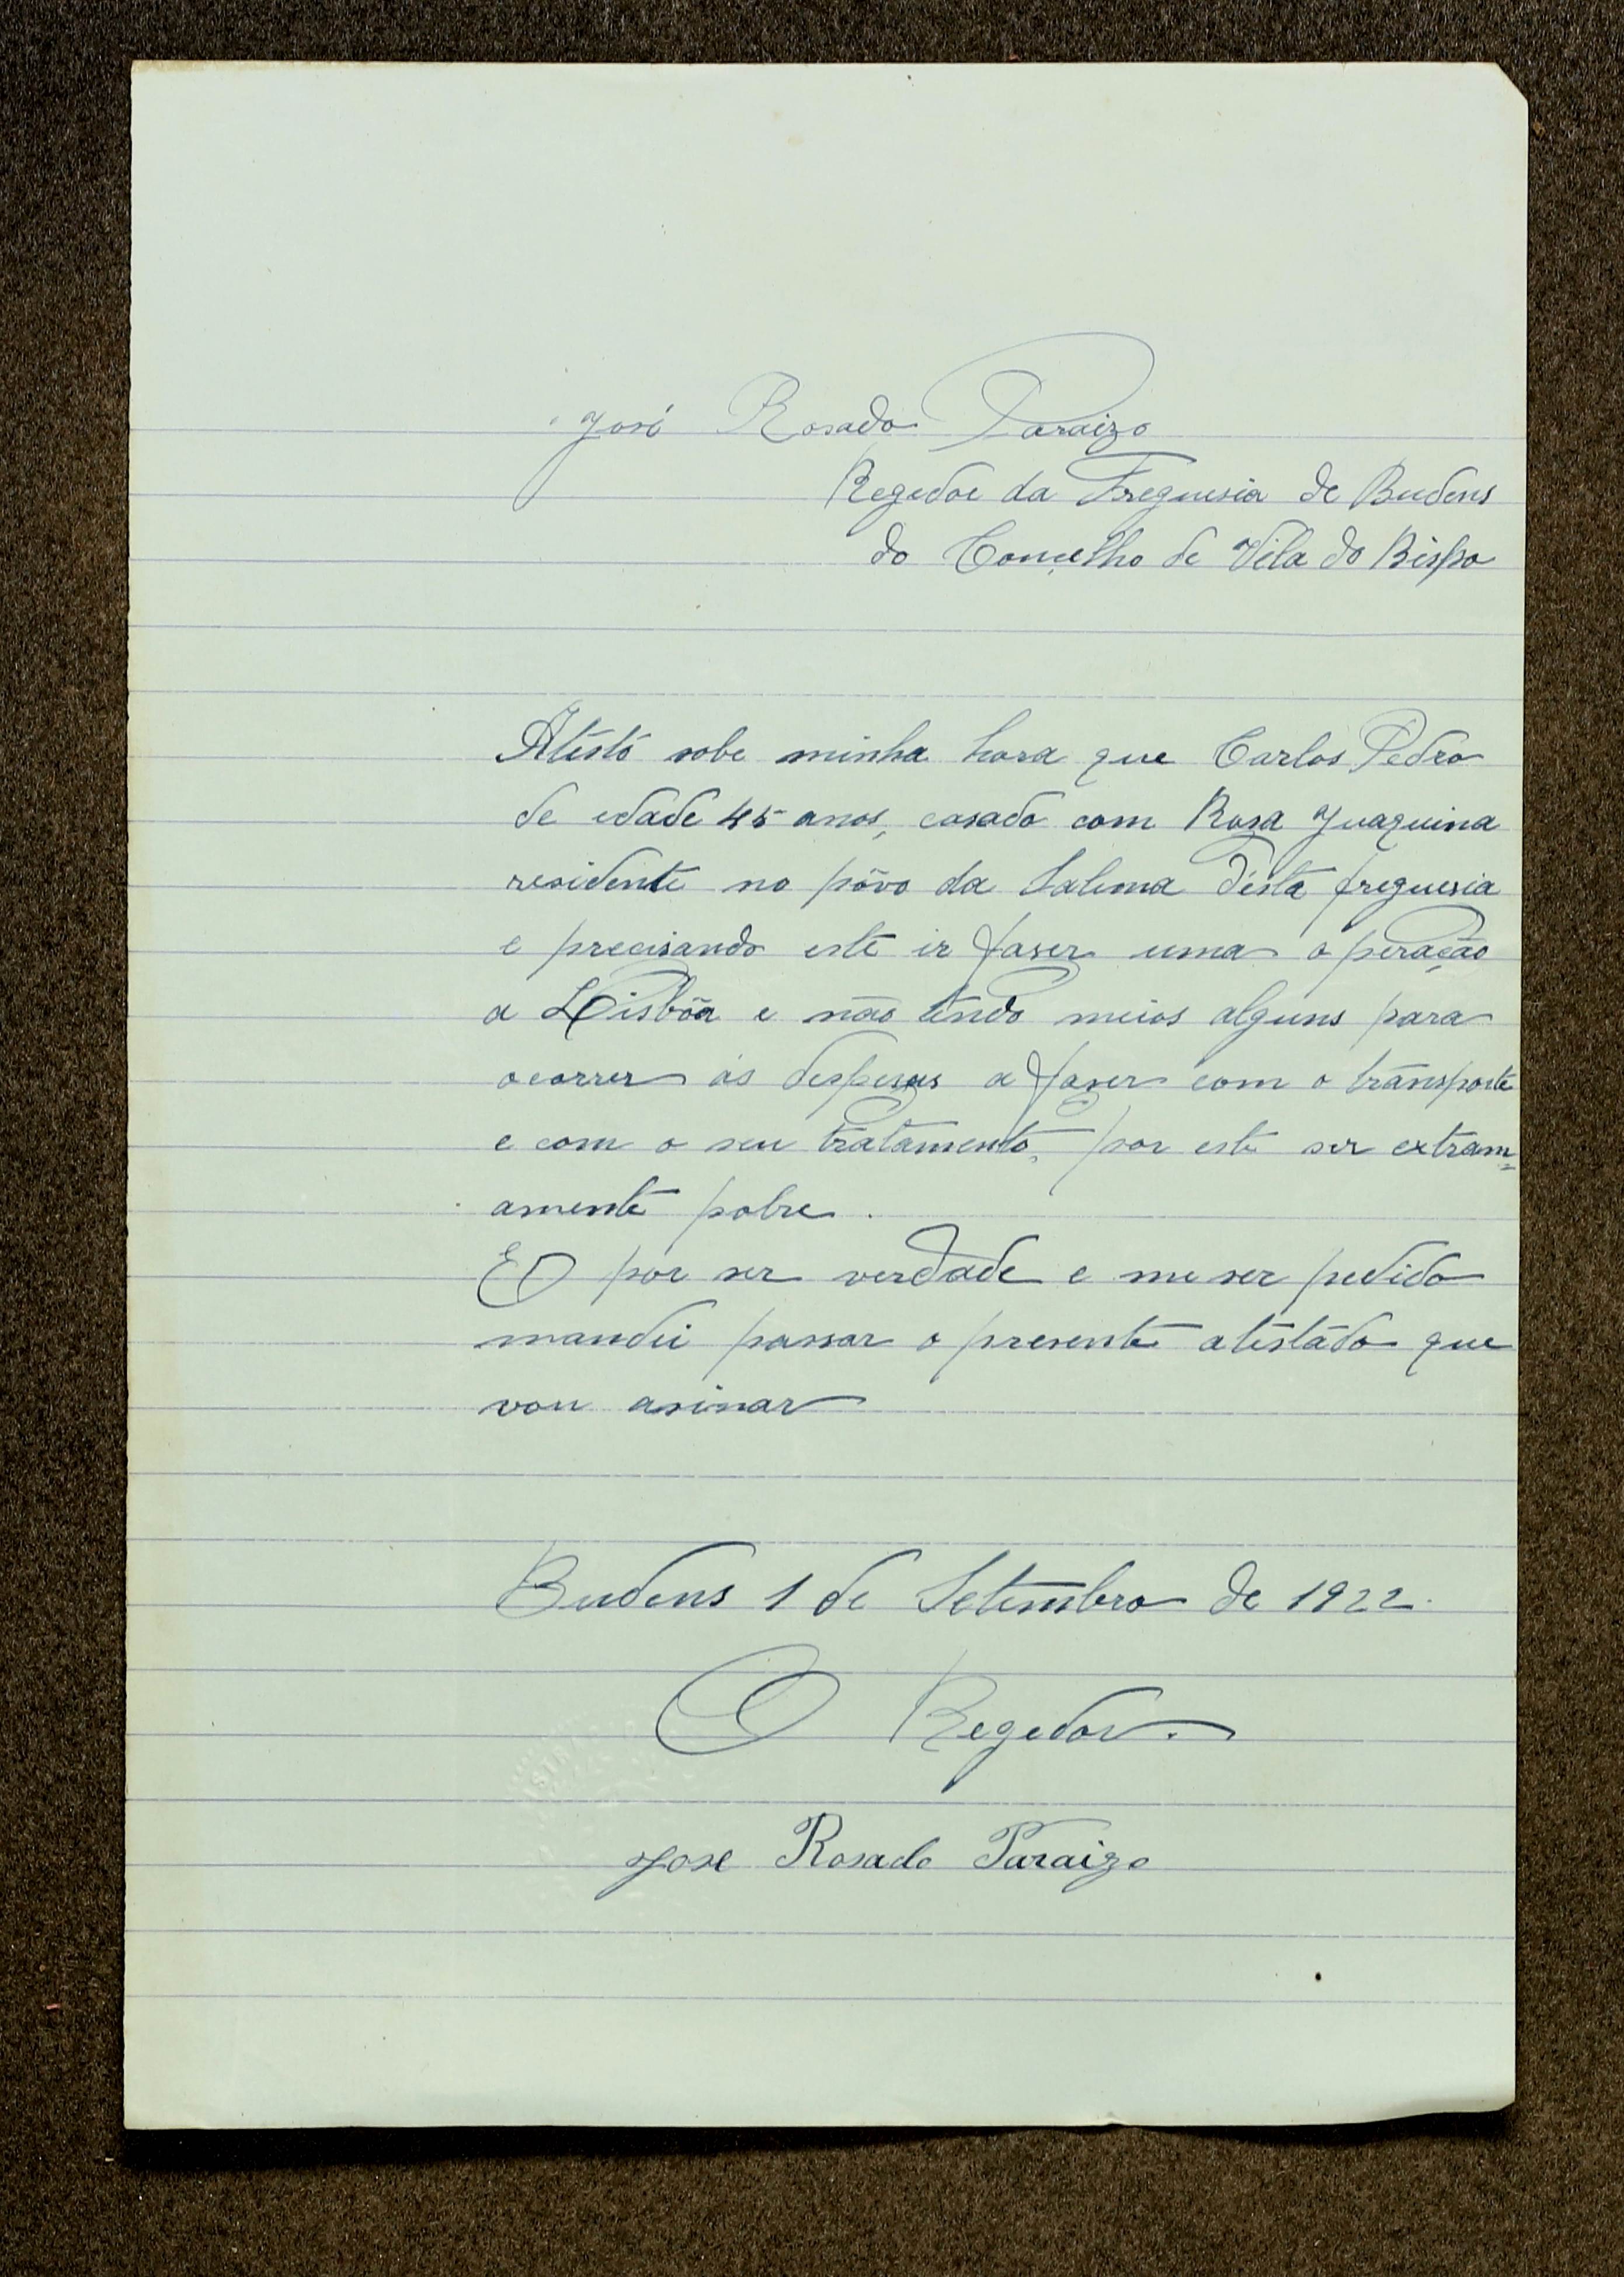 José Rosado Paraizo
Regedor da Freguesia de Budens
do Conçelho de Vila do Bispo
Atésto sobe minha hora que Carlos Pedro
de edade 45 anos, casado com Rosa Juaquina
residente no pôvo da Salema d'esta freguesia
e precisando este ir faser uma operação
a Lisbôa e não tendo meios alguns para
ocorrer ás despesas a faser com o transporte
e com o seu tratamento, por este ser extram=
amente pobre.
E por ser verdade e me ser pedido
mandei passar o presente atéstado que
vou asinar
Budens 1 de Setembro de 1922.
O Regedor.
José Rosado Paraizo